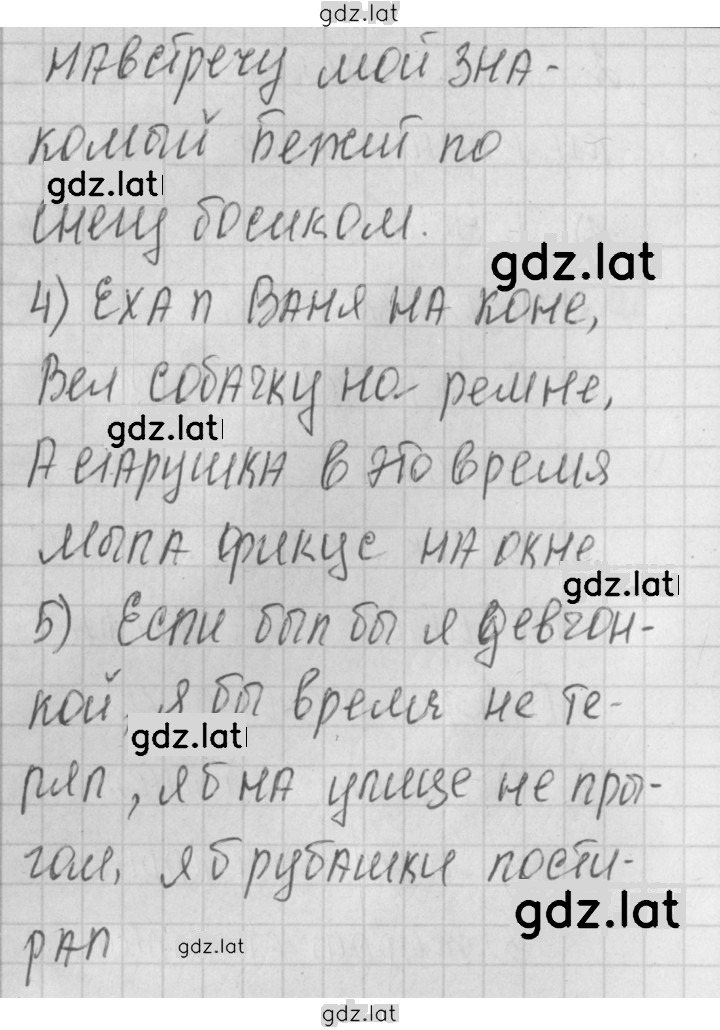 gdz.lat
навстречу мой зна-
комый бежит по
gdz.lat
снегу босиком.
gdz.lat
4) Ехал Ваня на коне,
Вел собачку на ремне,
gdz.lat
А старушка в это время
мыла фикус на окне
gdz.lat
5) Если был бы я девчон-
кой, я бы время не те-
gdz.lat
рял, я б на улице не пры-
гал, я б рубашки пости-
gdz.lat
рал
gdz.lat
gdz.lat